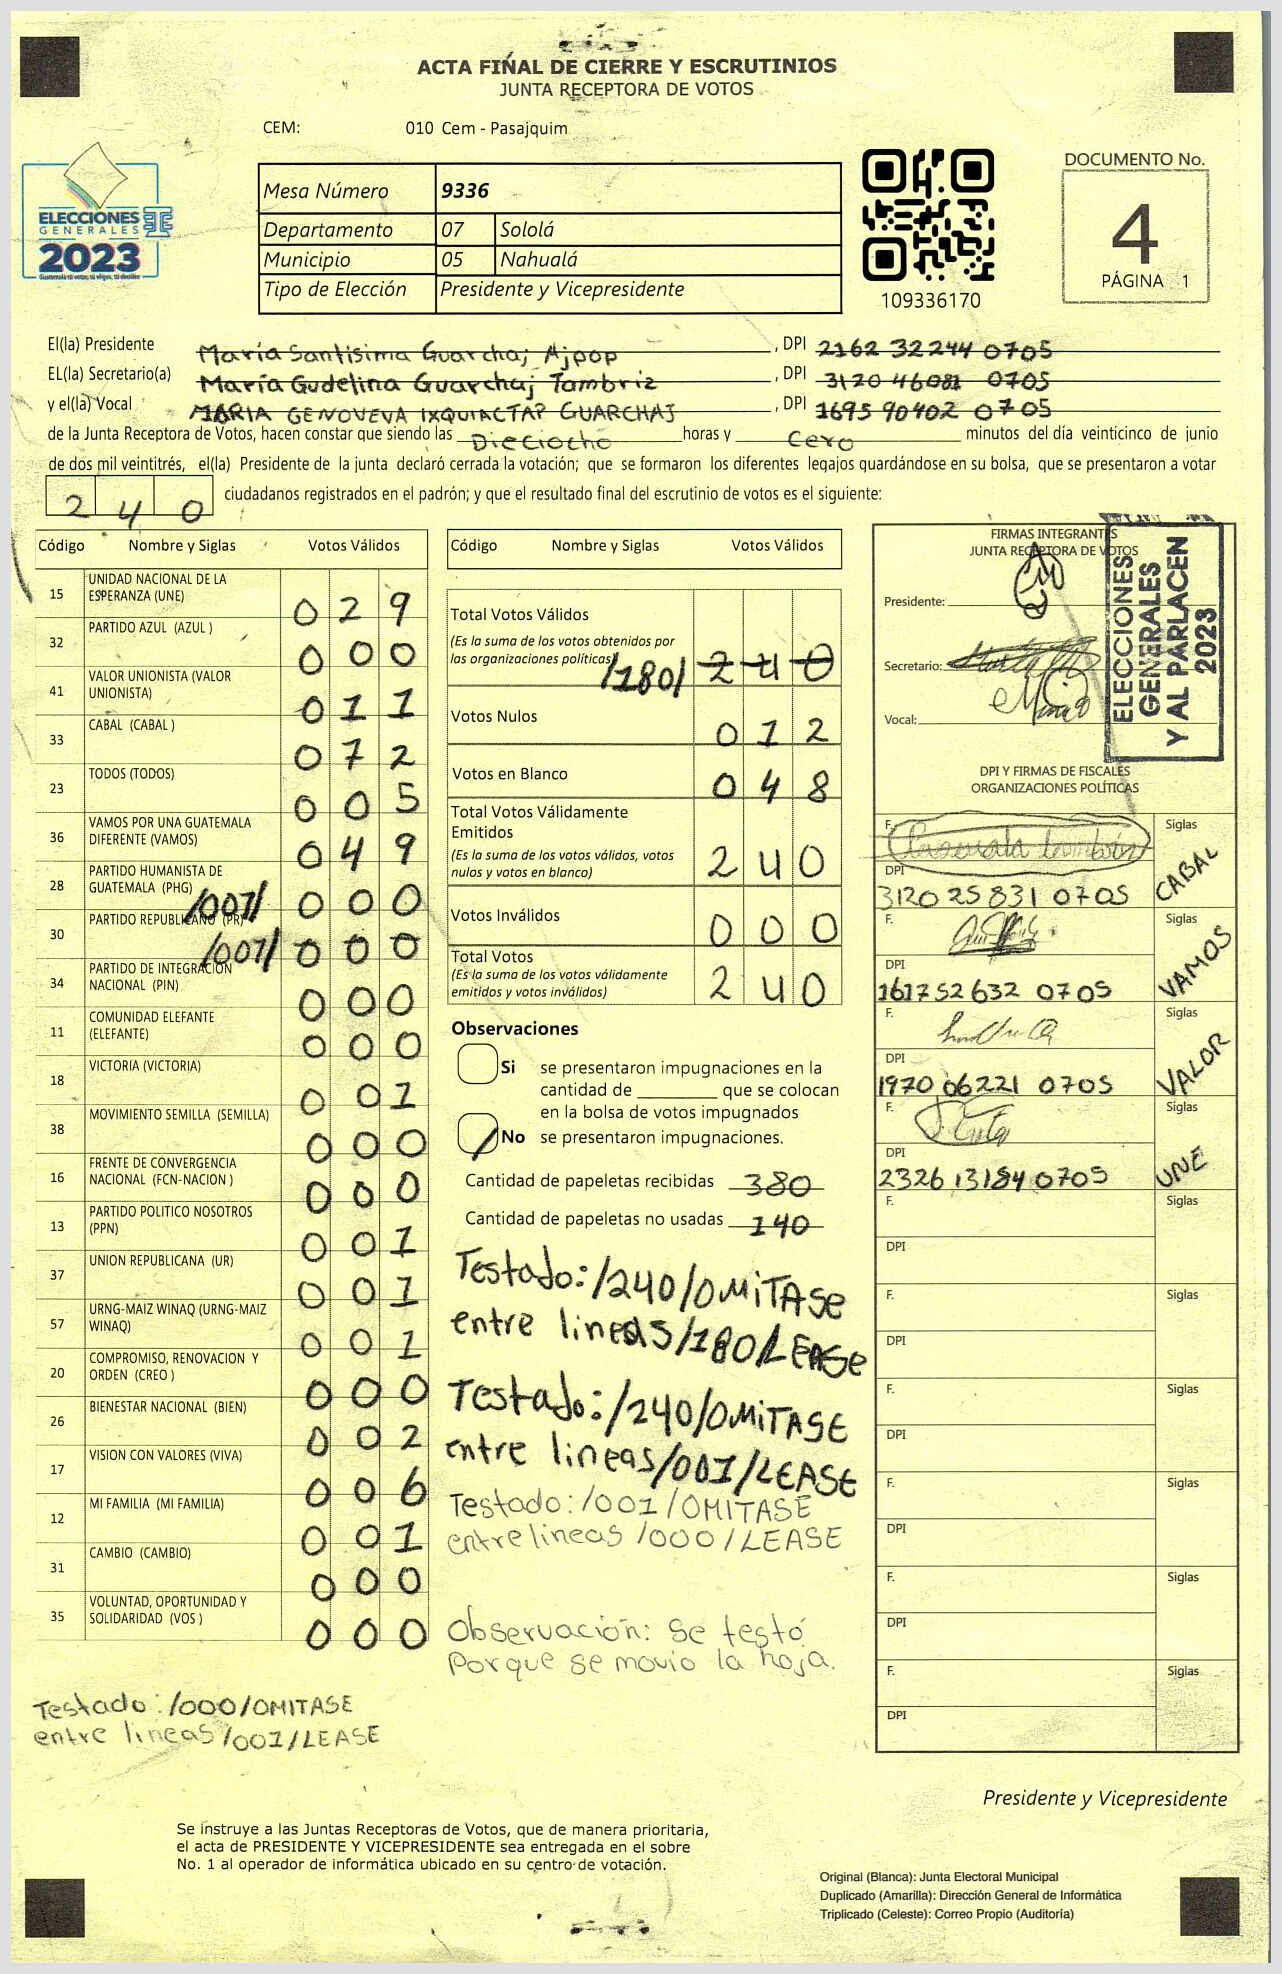 ACTA FINAL DE CIERRE Y ESCRUTINIOS
JUNTA RECEPTORA DE VOTOS
CEM: 010 Cem - Pasajquim
ELECCIONES
GENERALES
2023
Mesa Número 9336
Departamento 07 Sololá
Municipio 05 Nahualá
Tipo de Elección Presidente y Vicepresidente
109336170
DOCUMENTO No.
4
PÁGINA 1
El(la) Presidente María Santísima Guarchaj Ajpop, DPI 2162 32244 0705
EL(la) Secretario(a) María Gudelina Guarchaj Tambriz, DPI 3120 46081 0705
y el(la) Vocal MARIA GENOVEVA IXQUIACTAP GUARCHAJ, DPI 1695 90402 0705
de la Junta Receptora de Votos, hacen constar que siendo las Dieciocho horas y cero minutos del día veinticinco de junio
de dos mil veintitrés, el(la) Presidente de la junta declaró cerrada la votación; que se formaron los diferentes legajos guardándose en su bolsa, que se presentaron a votar
240 ciudadanos registrados en el padrón; y que el resultado final del escrutinio de votos es el siguiente:
Código Nombre y Siglas Votos Válidos
15 UNIDAD NACIONAL DE LA ESPERANZA (UNE) 029
32 PARTIDO AZUL (AZUL ) 000
41 VALOR UNIONISTA (VALOR UNIONISTA) 011
33 CABAL (CABAL ) 072
23 TODOS (TODOS) 005
36 VAMOS POR UNA GUATEMALA DIFERENTE (VAMOS) 049
28 PARTIDO HUMANISTA DE GUATEMALA (PHG) /001/ 000
30 PARTIDO REPUBLICANO (PR) /001/ 000
34 PARTIDO DE INTEGRACION NACIONAL (PIN) 000
11 COMUNIDAD ELEFANTE (ELEFANTE) 000
18 VICTORIA (VICTORIA) 001
38 MOVIMIENTO SEMILLA (SEMILLA) 000
16 FRENTE DE CONVERGENCIA NACIONAL (FCN-NACION ) 000
13 PARTIDO POLITICO NOSOTROS (PPN) 001
37 UNION REPUBLICANA (UR) 001
57 URNG-MAIZ WINAQ (URNG-MAIZ WINAQ) 001
20 COMPROMISO, RENOVACION Y ORDEN (CREO ) 000
26 BIENESTAR NACIONAL (BIEN) 002
17 VISION CON VALORES (VIVA) 006
12 MI FAMILIA (MI FAMILIA) 001
31 CAMBIO (CAMBIO) 000
35 VOLUNTAD, OPORTUNIDAD Y SOLIDARIDAD (VOS ) 000
Testado: /000/OMITASE
entre lineas /001/LEASE
Código Nombre y Siglas Votos Válidos
Total Votos Válidos
(Es la suma de los votos obtenidos por
las organizaciones políticas) /180/ 240
Votos Nulos 012
Votos en Blanco 048
Total Votos Válidamente
Emitidos
(Es la suma de los votos válidos, votos
nulos y votos en blanco) 240
Votos Inválidos 000
Total Votos
(Es la suma de los votos válidamente
emitidos y votos inválidos) 240
Observaciones
Si se presentaron impugnaciones en la
cantidad de ________ que se colocan
en la bolsa de votos impugnados
No se presentaron impugnaciones.
Cantidad de papeletas recibidas 380
Cantidad de papeletas no usadas 140
Testado: /240/OMITASE
entre lineas /180/LEASE
Testado: /240/OMITASE
entre lineas /001/LEASE
Testado: /001/OMITASE
entre lineas /000/LEASE
Observación: Se testó
Porque se movio la hoja.
FIRMAS INTEGRANTES
JUNTA RECEPTORA DE VOTOS
Presidente:
Secretario:
Vocal:
ELECCIONES
GENERALES
Y AL PARLACEN
2023
DPI Y FIRMAS DE FISCALES
ORGANIZACIONES POLÍTICAS
F. Siglas
DPI
3120 25831 0705 CABAL
F. Siglas
DPI
1617 52632 0705 VAMOS
F. Siglas
DPI
1970 06221 0705 VALOR
F. Siglas
DPI
2326 13184 0705 UNE
F. Siglas
DPI
F. Siglas
DPI
F. Siglas
DPI
F. Siglas
DPI
F. Siglas
DPI
F. Siglas
DPI
Presidente y Vicepresidente
Se instruye a las Juntas Receptoras de Votos, que de manera prioritaria,
el acta de PRESIDENTE Y VICEPRESIDENTE sea entregada en el sobre
No. 1 al operador de informática ubicado en su centro de votación.
Original (Blanca): Junta Electoral Municipal
Duplicado (Amarilla): Dirección General de Informática
Triplicado (Celeste): Correo Propio (Auditoría)